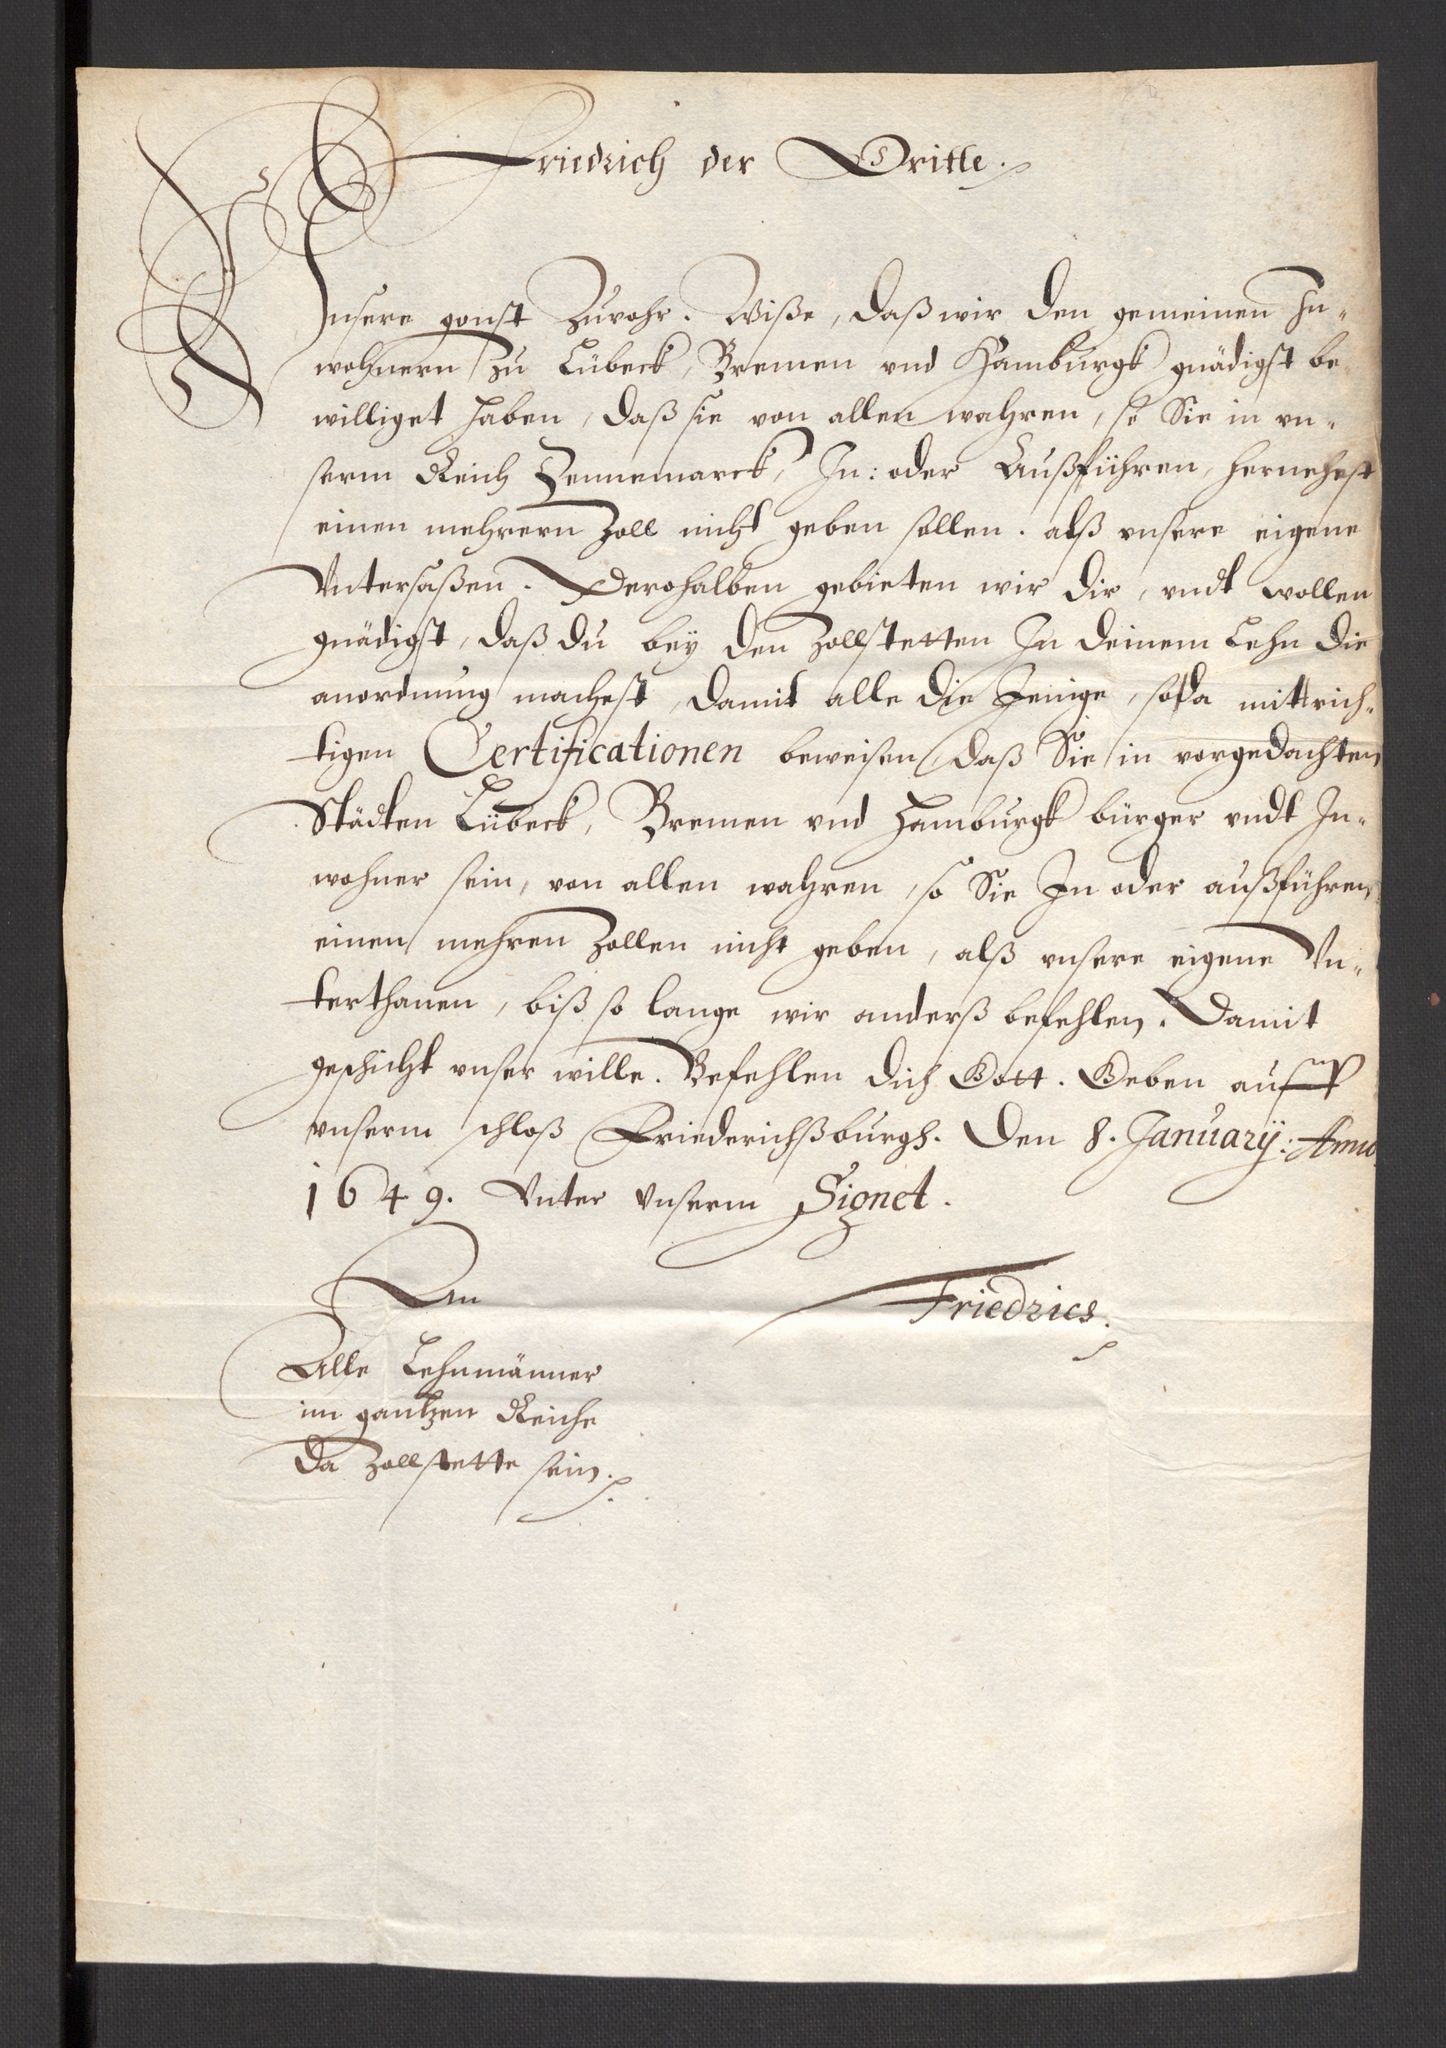 Friedrich der Dritte.
Unsere gonst Zuvohr. Wiße, daß wir den gemeinen In-
wohnern zu Lübeck, Bremen vnd Hamburgk gnädigst be-
williget haben, daß sie von allen wahren, so Sie in vn-
serm Reich Dennemarck, In: oder Außführen, hernehest
einen mehrern Zoll nicht geben sollen. alß vnsere eigene
Vntersaßen. Derohalben gebieten wir dir, vndt wollen
gnädigst, daß du bey den Zollstetten In deinem Lehn die
anordnung machest, damit alle die Jenige, so da mit rich-
tigen Certificationen beweisen, daß Sie in vorgedachten
Städten Lübeck, Bremen vnd Hamburgk bürger vndt In-
wohner sein, von allen wahren, so Sie In oder außführen
einen mehren Zollen nicht geben, alß vnsere eigene Vn-
terthanen, biß so lange wir anderß befehlen. Damit
geschicht vnser wille. Befehlen dich Gott. Geben auff
vnserm schloß Friederichßburgh. den 8. January: Anno
1649. Vnter Vnserm Signet.
An
Friedrics.
Alle Lehnmänner
im gantzen Reiche
da Zollstette sein.